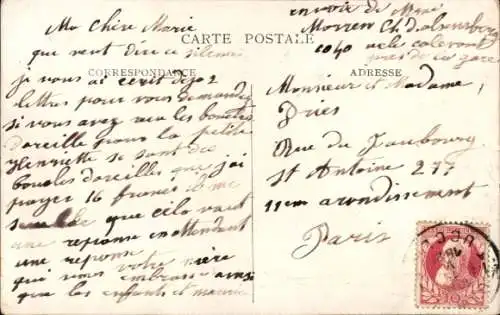 Ma Chère Marie
que veut dire ce silence
je vous ai ecrit deja 2
lettres pour vous demander
si vous avez eus les boucles
doreille pour la petite
Henriette se sont des
boucles doreilles que j'ai
payer 16 francs il me
semble que cela vaut
une reponse en attendant
une reponse
votre mère
qui vous embrasse ainsi
que les enfants et maurice
envoir de Mme
Morren Ch d'alsemberg
1040 uccle calevoet
près de la gare
CARTE POSTALE
CORRESPONDANCE
ADRESSE
Monsieur et Madame
Dries
Rue du Faubourg
St Antoine 277
11em arondissement
Paris
10